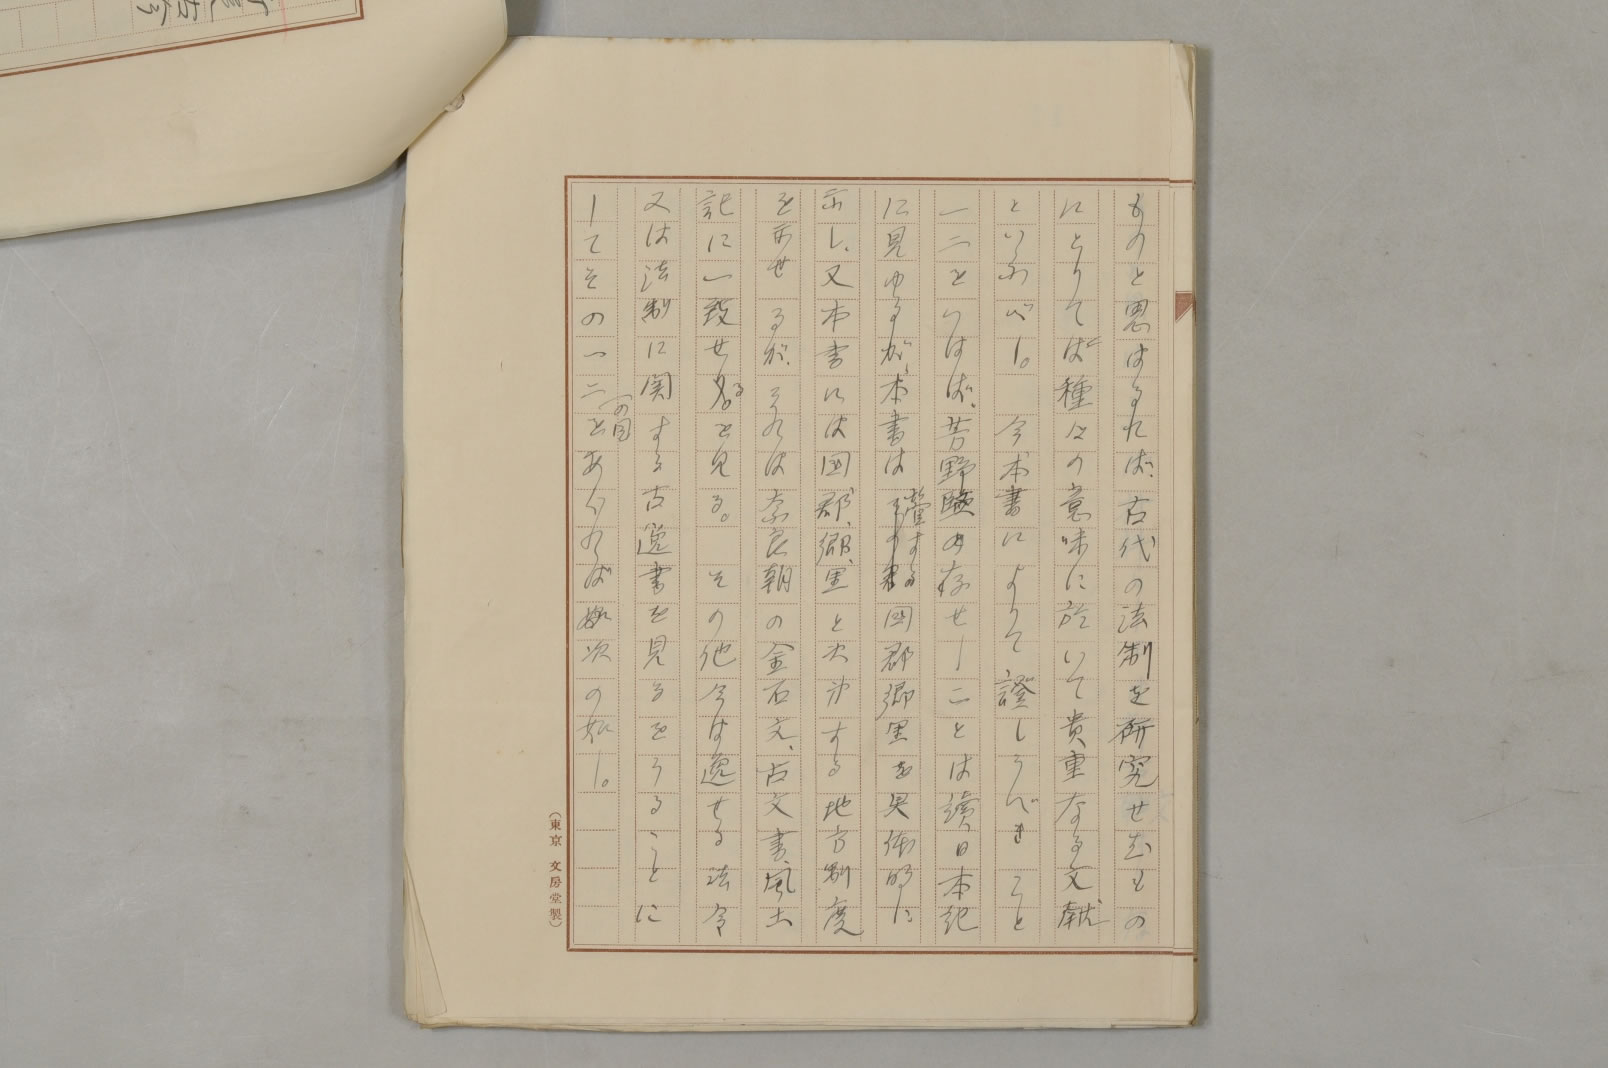 ものと思はるれば、古代の法制を研究せむもの
にとりてば種々の意味に於いて貴重なる文献
といふべし。 今本書によりて證しうべきこと
一二をいはば、芳野監の存せしことは續日本紀
に見ゆるが、本書は管する国郡郷里を具体的に
示し、又本書には国、郡、郷、里と次第する地方制度
を示せるが、それは奈良朝の金石文、古文書、風土
記に一致せるを見る。 その他今は逸せる法令
又は法制に関する古逸書を見るをうることに
してその一二の目をあぐれば次の如し。
(東京 文房堂製)